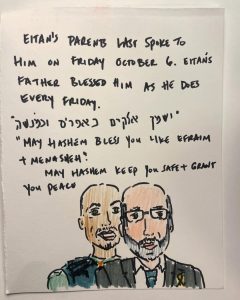 EITAN'S PARENTS LAST SPOKE TO
HIM ON FRIDAY OCTOBER 6. EITAN'S
FATHER BLESSED HIM AS HE DOES
EVERY FRIDAY.
"ישימך אלקים כאפרים וכמנשה"
"MAY HASHEM BLESS YOU LIKE EFRAIM
+ MENASHEH"
MAY HASHEM KEEP YOU SAFE + GRANT
YOU PEACE